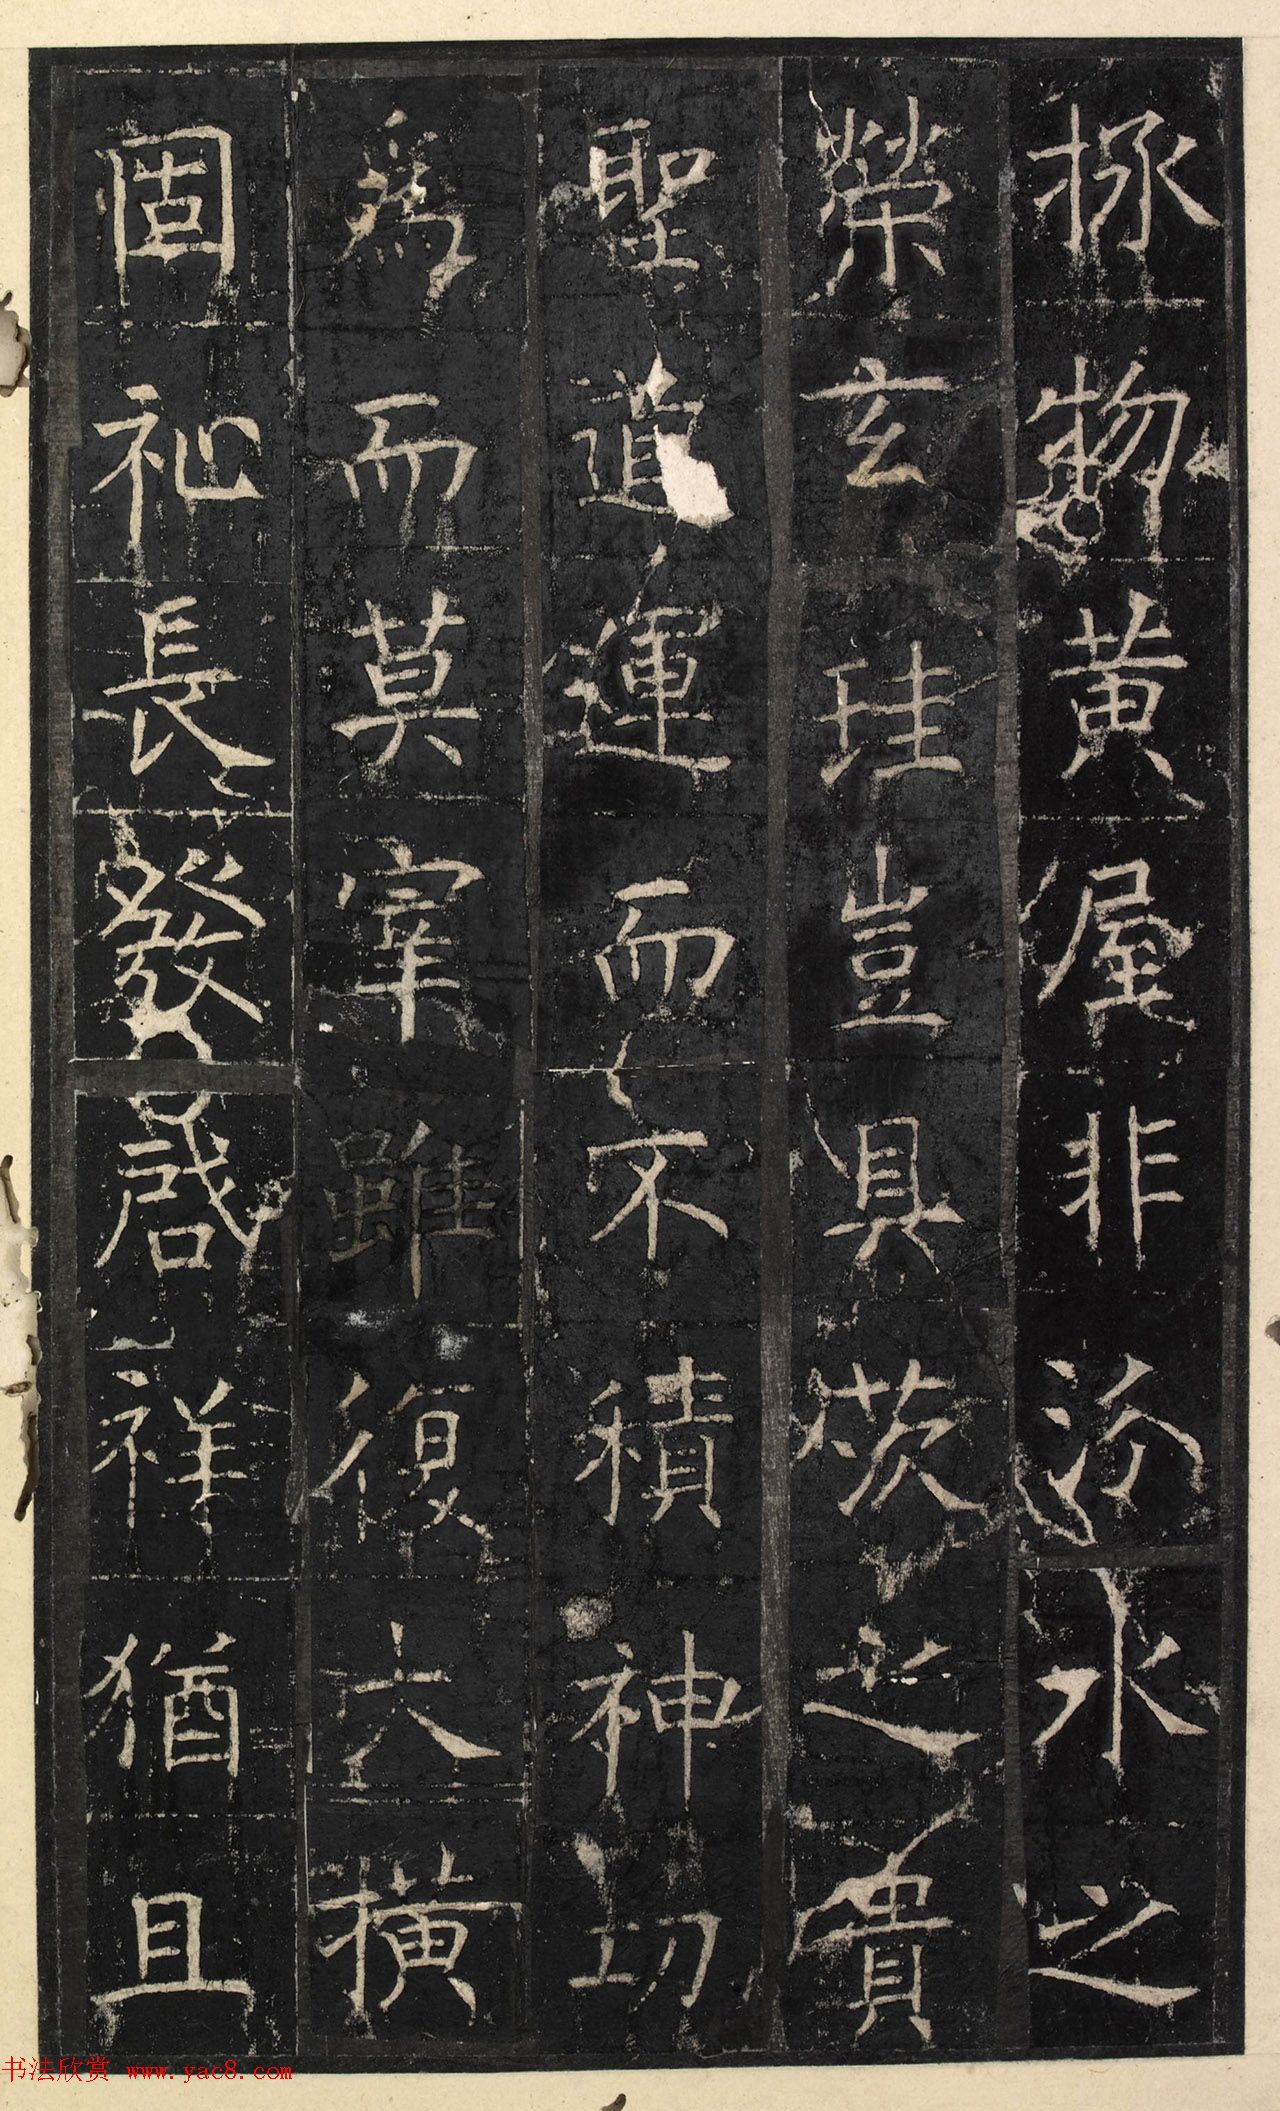 拯物黃屋非汾水之
榮玄珪豈具茨之貴
聖道運而不積神功
為而莫宰雖復大橫
固祉長發啓祥猶且
书法欣赏 www.yac8.com